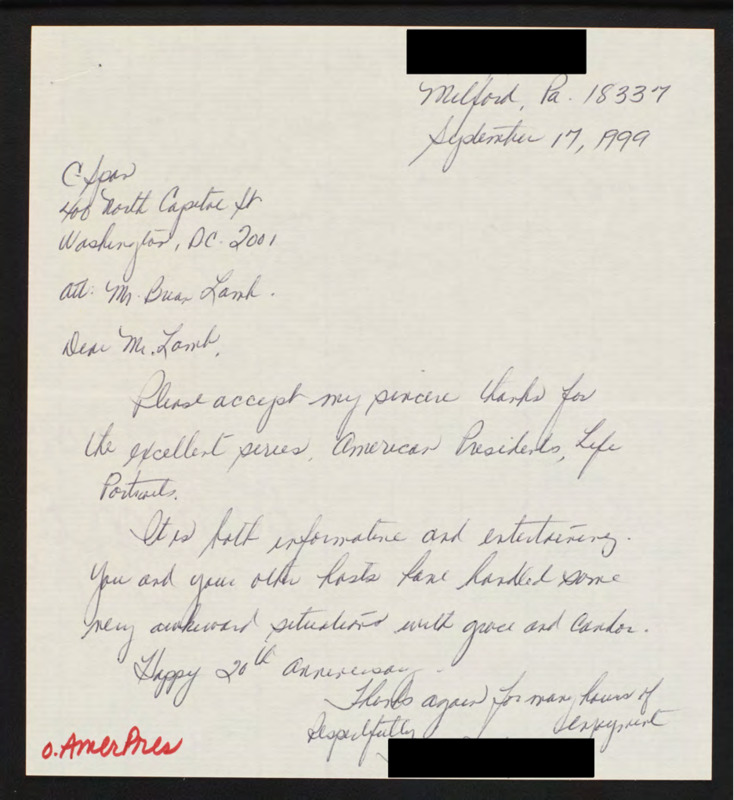 Milford, Pa. 18337
September 17, 1999
C-Span
400 North Capitol St
Washington, DC. 2001
Att: Mr. Brian Lamb.
Dear Mr. Lamb,
Please accept my sincere thanks for
the excellent series, American Presidents, Life
Portraits.
It is both informative and entertaining.
You and your other hosts have handled some
very awkward situations with grace and candor.
Happy 20th Anniversary
Thanks again for many hours of
enjoyment
Respectfully
O. AmerPres